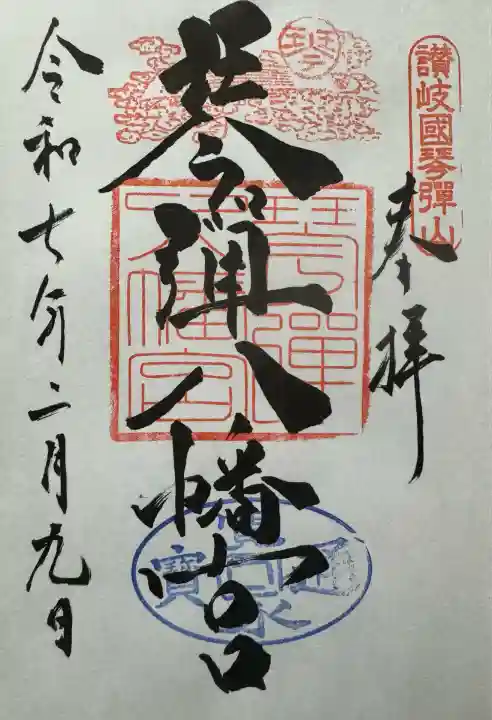 讃岐國琴彈山
奉拝
琴弾八幡宮
琴彈
八幡宮
寛永通寳
令和七年二月九日